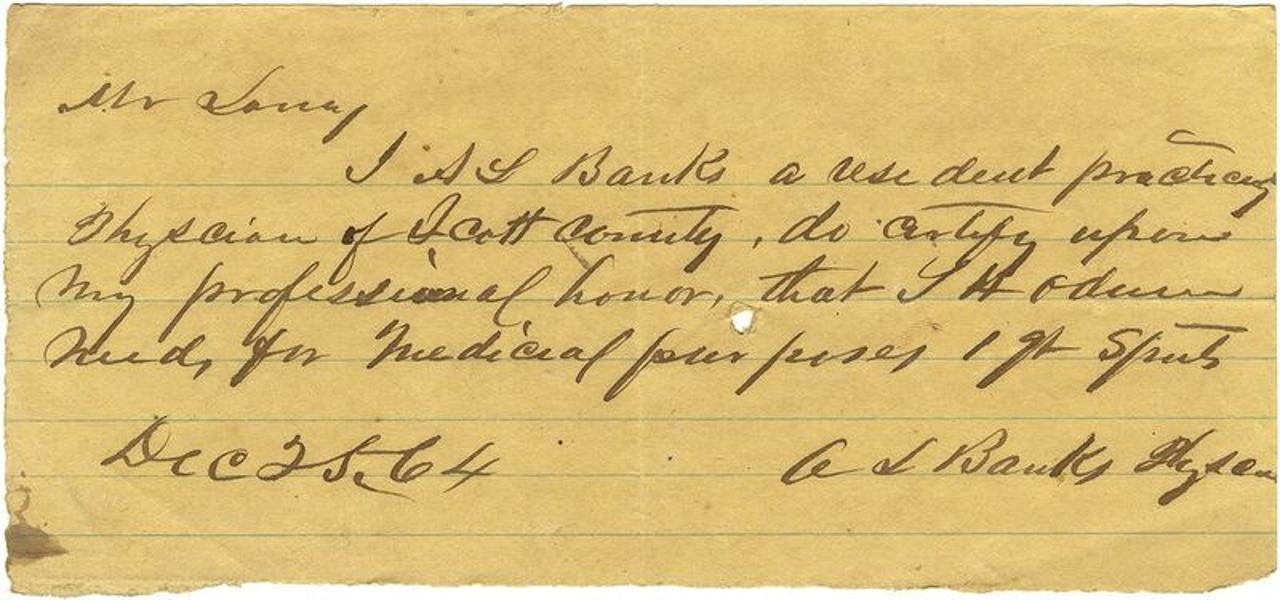 Mr Lowry
I A L Banks a resident practicing
Physcian of Scott county, do certify upon
my professional honor, that S H Odum
needs for Medicial purposes 1 qt Spirits
Dec 25, 64
A L Banks Physcn